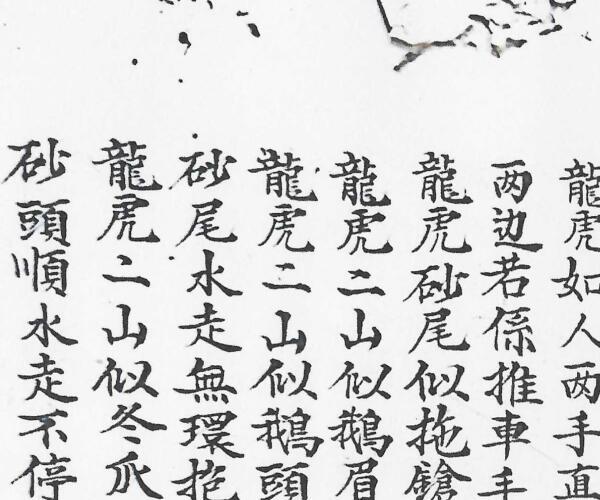 龍虎如人两手直
两边若係推車手
龍虎砂尾似拖鎗
龍虎二山似鵝眉
龍虎二山似鵝頭
砂尾水走無環抱
龍虎二山似冬瓜
砂頭順水走不停